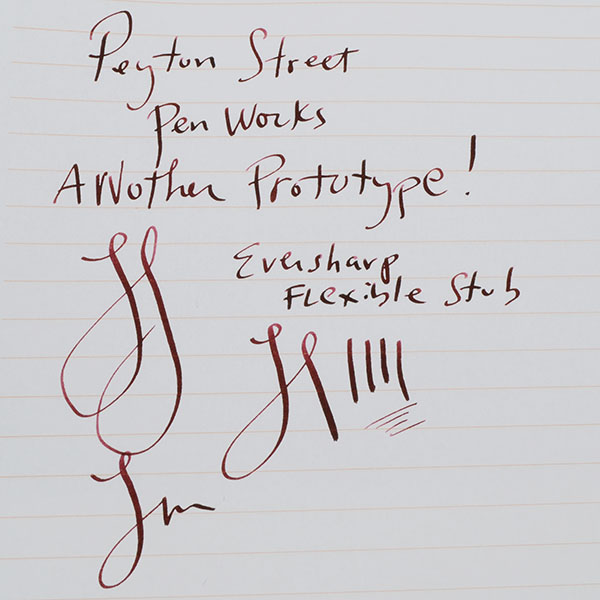 Peyton Street
Pen Works
ANother Prototype!
Eversharp
Flexible Stub